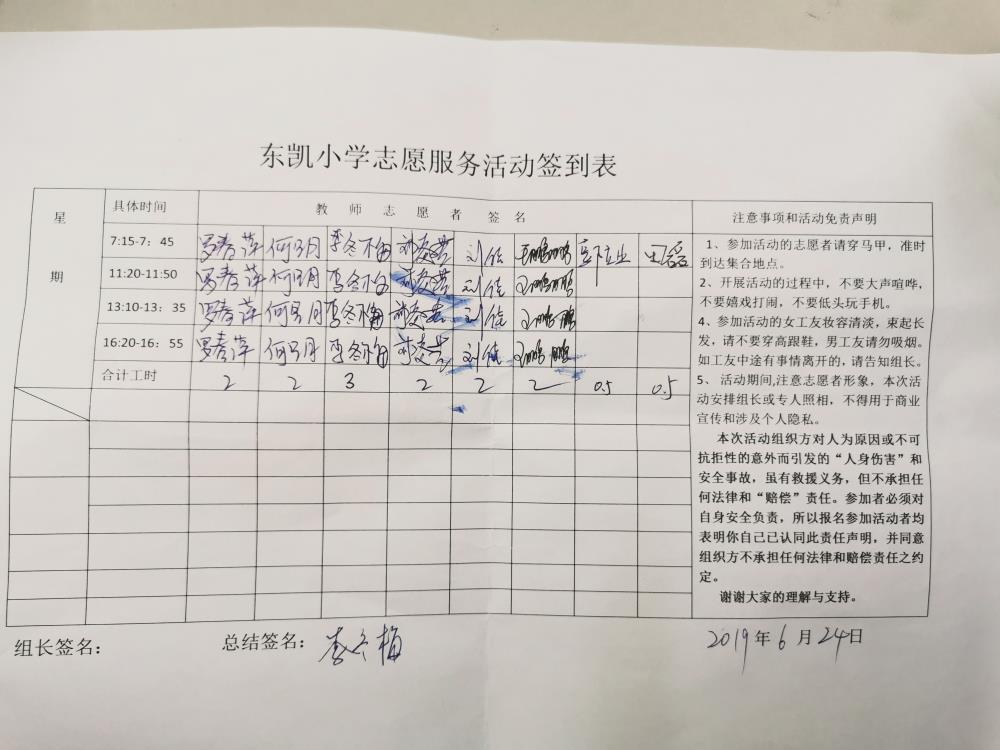 东凯小学志愿服务活动签到表
星期
具体时间
教师志愿者签名
注意事项和活动免责声明
7:15-7：45 罗春萍 何明月 李冬梅 刘佳
11:20-11:50 罗春萍 何明月 李冬梅 刘佳
13:10-13：35 罗春萍 何明月 李冬梅 刘佳
16:20-16：55 罗春萍 何明月 李冬梅 刘佳
合计工时 2 2 3 2 2 2 0.5 0.5
1、参加活动的志愿者请穿马甲，准时
到达集合地点。
2、开展活动的过程中，不要大声喧哗，
不要嬉戏打闹，不要低头玩手机。
4、参加活动的女工友妆容清淡，束起长
发，请不要穿高跟鞋，男工友请勿吸烟。
如工友中途有事情离开的，请告知组长。
5、 活动期间,注意志愿者形象，本次活
动安排组长或专人照相，不得用于商业
宣传和涉及个人隐私。
本次活动组织方对人为原因或不可
抗拒性的意外而引发的“人身伤害”和
安全事故，虽有救援义务，但不承担任
何法律和“赔偿”责任。参加者必须对
自身安全负责，所以报名参加活动者均
表明你自己已认同此责任声明，并同意
组织方不承担任何法律和赔偿责任之约
定。
谢谢大家的理解与支持。
组长签名：
总结签名：李冬梅
2019年6月24日